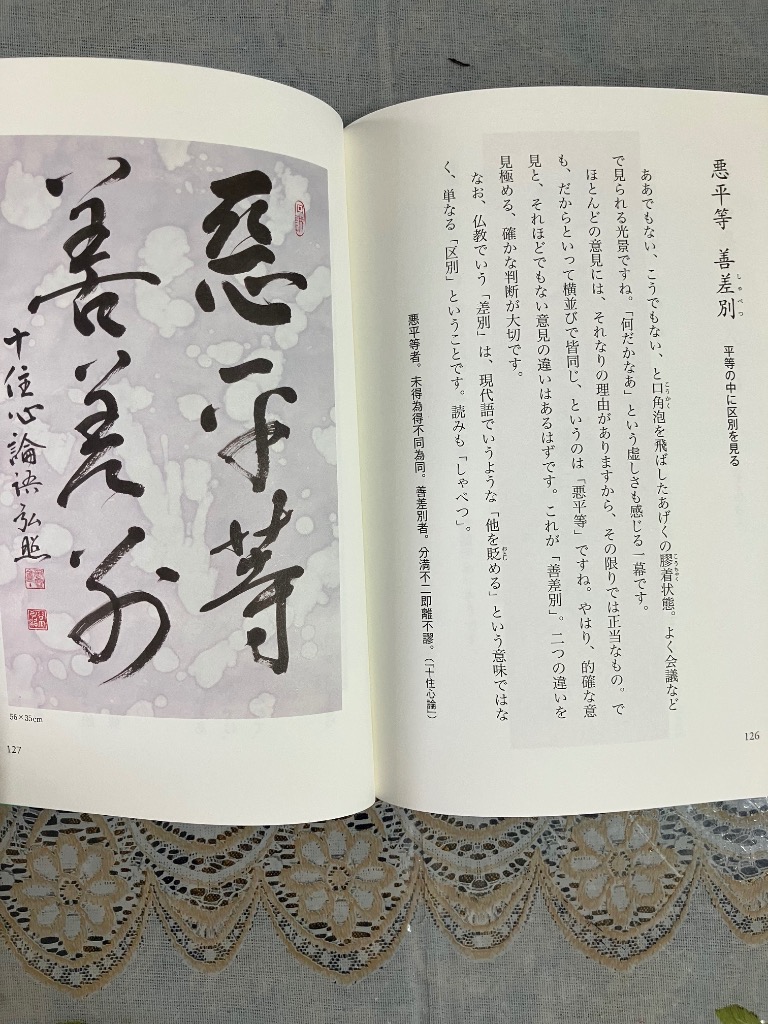 悪平等 善差別
しゃべつ
平等の中に区別を見る
ああでもない、こうでもない、と口角泡を飛ばしたあげくの膠着状態。よく会議など
こうかく
こうちゃく
で見られる光景ですね。「何だかなあ」という虚しさも感じる一幕です。
ほとんどの意見には、それなりの理由がありますから、その限りでは正当なもの。で
も、だからといって横並びで皆同じ、というのは「悪平等」ですね。やはり、的確な意
見と、それほどでもない意見の違いはあるはずです。これが「善差別」。二つの違いを
見極める、確かな判断が大切です。
なお、仏教でいう「差別」は、現代語でいうような「他を貶める」という意味ではな
おとし
く、単なる「区別」ということです。読みも「しゃべつ」。
悪平等者。未得為得不同為同。善差別者。分満不二即離不謬。(『十住心論』)
126
惡平等
善差別
十住心論語 弘照
56×35cm
127